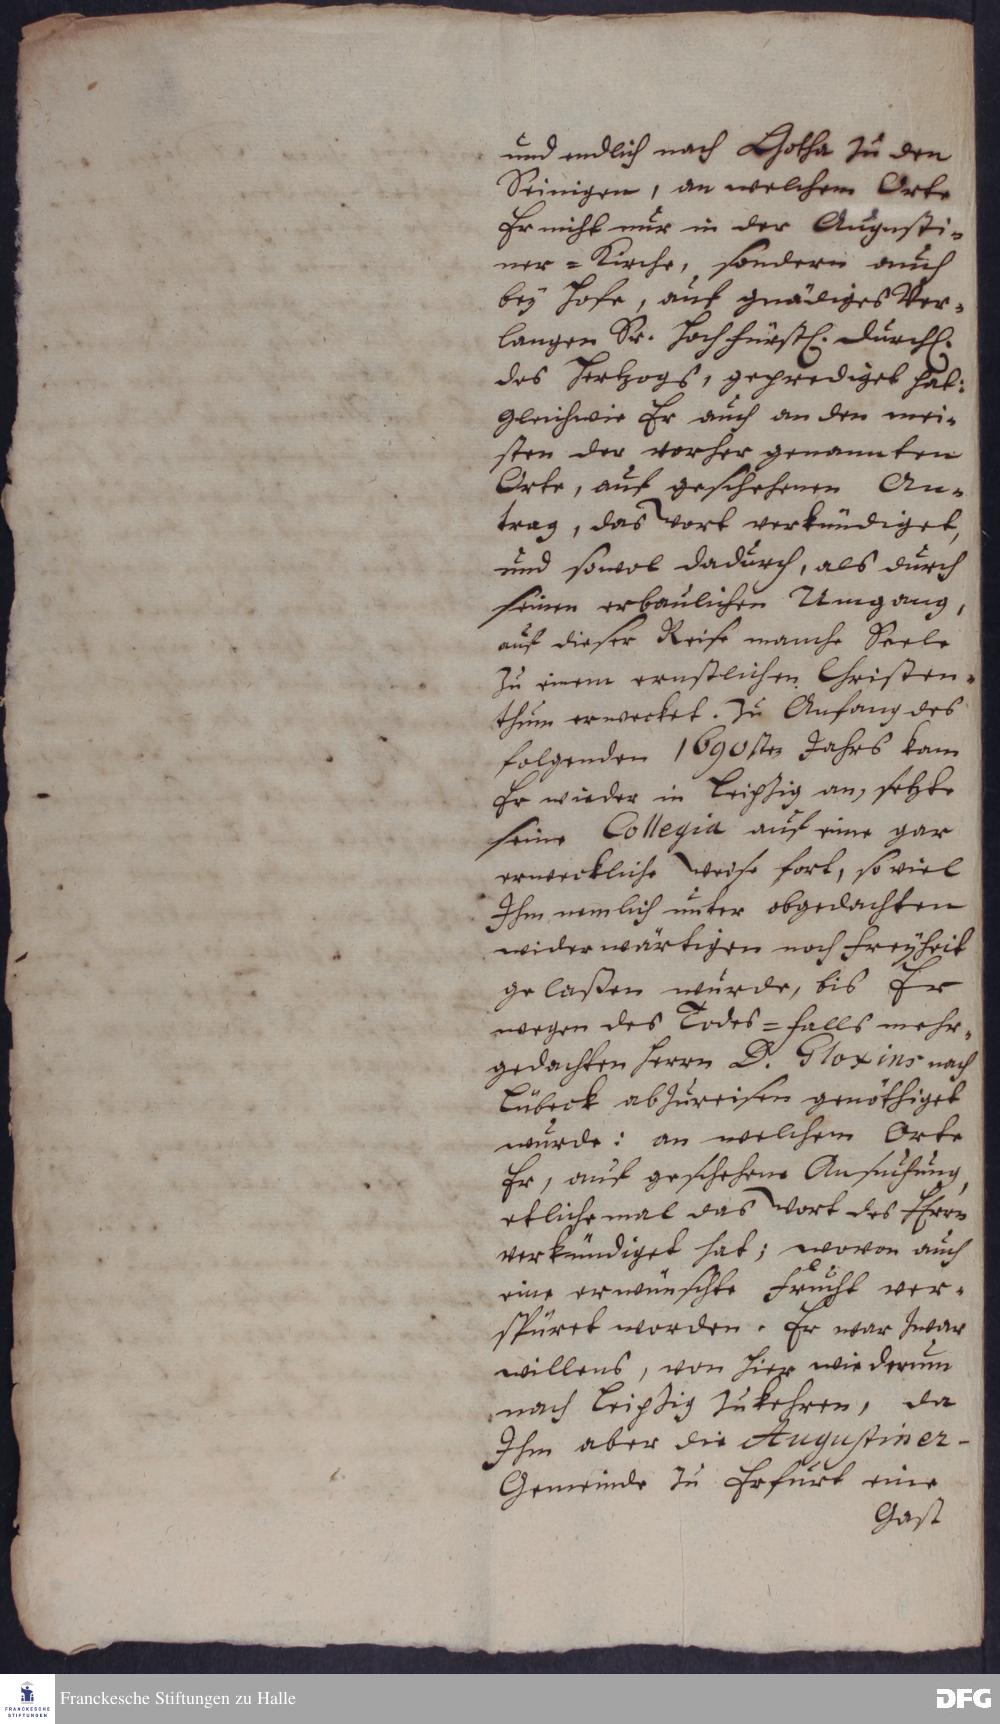 und endlich nach Gotha zu den
Seinigen, an welchem Orte
Er nicht nur in der Augusti-
ner-Kirche, sondern auch
bey Hofe, auf gnädiges Ver-
langen Sr. Hochfürstl. Durchl.
des Hertzogs, geprediget hat:
gleichwie Er auch an den mei-
sten der vorher genannten
Orte, auf geschehenen An-
trag, das Wort verkündiget,
und sowol dadurch, als durch
seinen erbaulichen Umgang,
auf dieser Reise manche Seele
zu einem ernstlichen Christen-
thum erwecket. Zu Anfang des
folgenden 1690sten Jahrs kam
Er wieder in Leipzig an, setzte
seine Collegia auf eine gar
erweckliche Weise fort, so viel
Ihm nemlich unter obgedachten
widerwärtigen noch Freyheit
gelaßen wurde, bis Er
wegen des Todes-falls mehr-
gedachten Herrn D. Gloxins nach
Lübeck abzureisen genöthiget
wurde: an welchem Orte
Er, auf geschehene Ansuchung,
etliche mal das Wort des HErrn
verkündiget hat; wovon auch
eine erwünschte Frucht ver-
spüret worden. Er war zwar
willens, von hier wiederum
nach Leipzig zukehren, da
Ihm aber die Augustiner-
Gemeinde zu Erfurt eine
Gast
FRANCKESCHE
STIFTUNGEN
Franckesche Stiftungen zu Halle
DFG